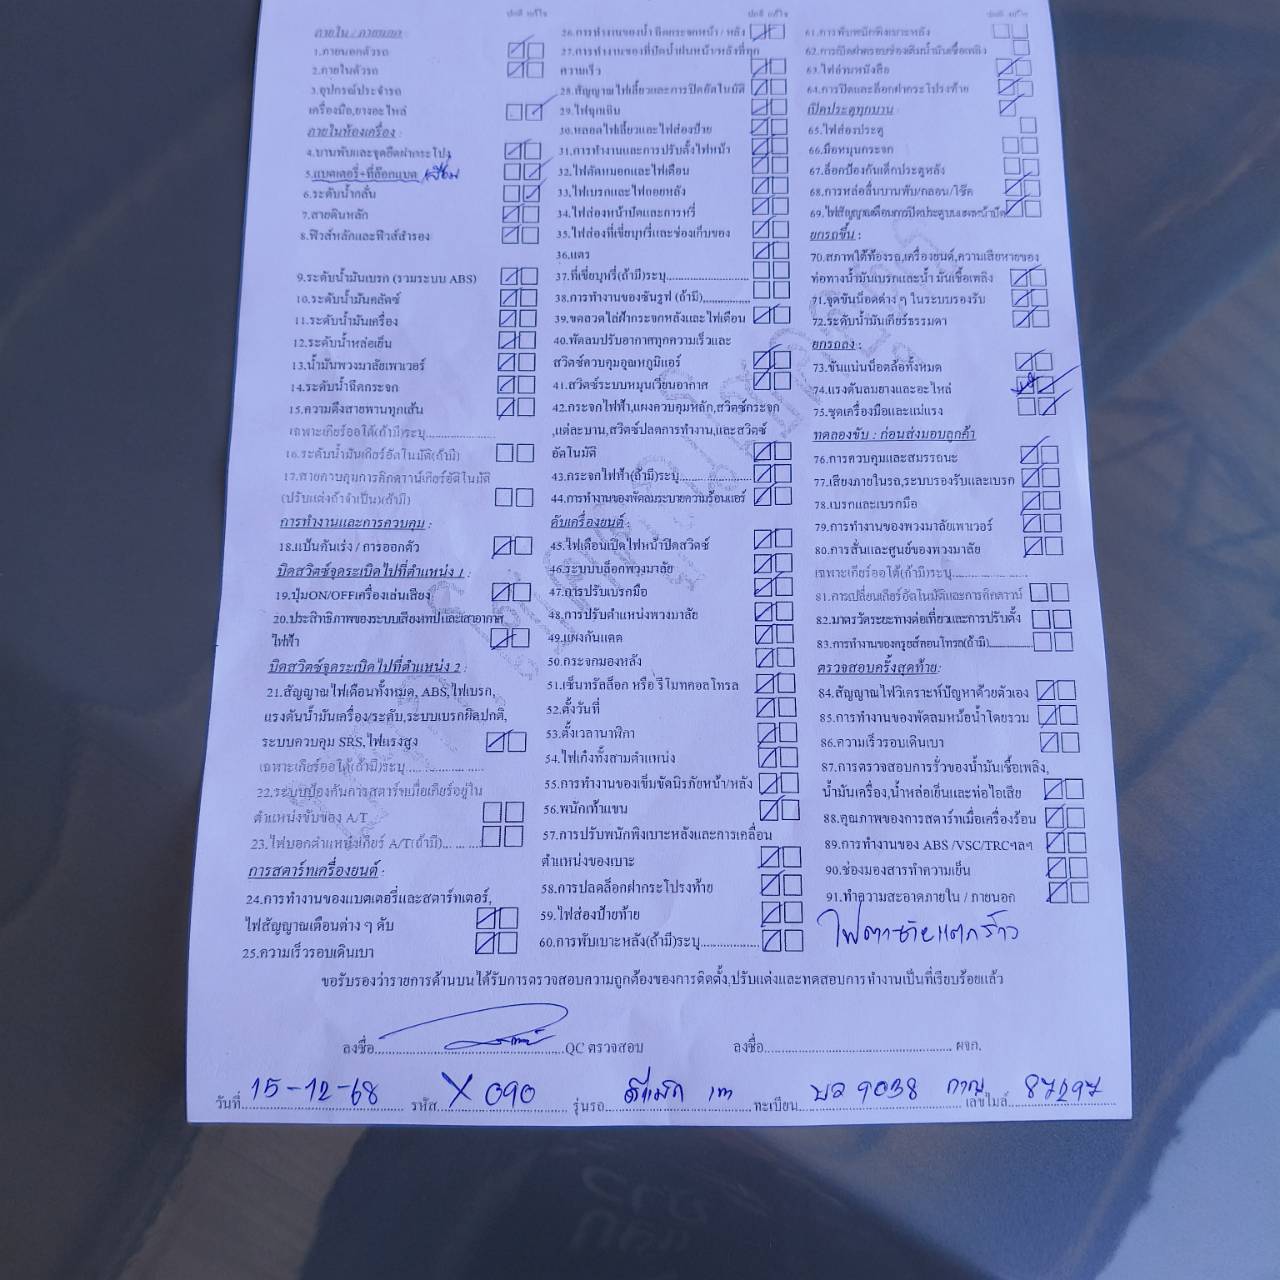 ปกติ แก้ไข
ภายใน / ภายนอก
1.ภายนอกตัวรถ
2.ภายในตัวรถ
3.อุปกรณ์ประจำรถ
เครื่องมือ,ยางอะไหล่
ภายในห้องเครื่อง :
4.บานพับและจุดยึดฝากระโปรง
5.แบตเตอรี่+ที่ล็อกแบต เสื่อม
6.ระดับน้ำกลั่น
7.สายดินหลัก
8.ฟิวส์หลักและฟิวส์สำรอง
9.ระดับน้ำมันเบรก (รวมระบบ ABS)
10.ระดับน้ำมันคลัตซ์
11.ระดับน้ำมันเครื่อง
12.ระดับน้ำหล่อเย็น
13.น้ำมันพวงมาลัยเพาเวอร์
14.ระดับน้ำฉีดกระจก
15.ความตึงสายพานทุกเส้น
เฉพาะเกียร์ออโต้(ถ้ามี)ระบุ..............
16.ระดับน้ำมันเกียร์อัตโนมัติ(ถ้ามี)
17.สายควบคุมการคิกดาวน์เกียร์อัตโนมัติ
(ปรับแต่งถ้าจำเป็น)(ถ้ามี)
การทำงานและการควบคุม :
18.แป้นคันเร่ง / การออกตัว
บิดสวิตซ์จุดระเบิดไปที่ตำแหน่ง 1 :
19.ปุ่มON/OFFเครื่องเล่นเสียง
20.ประสิทธิภาพของระบบเสียงเทปและเสาอากาศ
ไฟฟ้า
บิดสวิตซ์จุดระเบิดไปที่ตำแหน่ง 2 :
21.สัญญาณไฟเตือนทั้งหมด, ABS,ไฟเบรก,
แรงดันน้ำมันเครื่อง/ระดับ,ระบบเบรกผิดปกติ,
ระบบควบคุม SRS,ไฟแรงสูง
เฉพาะเกียร์ออโต้(ถ้ามี)ระบุ..............
22.ระบบป้องกันการสตาร์ทเมื่อเกียร์อยู่ใน
ตำแหน่งขับของ A/T
23.ไฟบอกตำแหน่งเกียร์ A/T(ถ้ามี).........
การสตาร์ทเครื่องยนต์ :
24.การทำงานของแบตเตอรี่และสตาร์ทเตอร์,
ไฟสัญญาณเตือนต่าง ๆ ดับ
25.ความเร็วรอบเดินเบา
ปกติ แก้ไข
26.การทำงานของน้ำฉีดกระจกหน้า / หลัง
27.การทำงานของที่ปัดน้ำฝนหน้า/หลังที่ทุก
ความเร็ว
28.สัญญาณไฟเลี้ยวและการปิดอัตโนมัติ
29.ไฟฉุกเฉิน
30.หลอดไฟเลี้ยวและไฟส่องป้าย
31.การทำงานและการปรับตั้งไฟหน้า
32.ไฟตัดหมอกและไฟเตือน
33.ไฟเบรกและไฟถอยหลัง
34.ไฟส่องหน้าปัดและการหรี่
35.ไฟส่องที่เขี่ยบุหรี่และช่องเก็บของ
36.แตร
37.ที่เขี่ยบุหรี่(ถ้ามี)ระบุ....................
38.การทำงานของซันรูฟ (ถ้ามี)..............
39.ขดลวดไล่ฝ้ากระจกหลังและไฟเตือน
40.พัดลมปรับอากาศทุกความเร็วและ
สวิตซ์ควบคุมอุณหภูมิแอร์
41.สวิตซ์ระบบหมุนเวียนอากาศ
42.กระจกไฟฟ้า,แผงควบคุมหลัก,สวิตซ์กระจก
,แต่ละบาน,สวิตซ์ปลดการทำงาน,และสวิตซ์
อัตโนมัติ
43.กระจกไฟฟ้า(ถ้ามี)ระบุ....................
44.การทำงานของพัดลมระบายความร้อนแอร์
ดับเครื่องยนต์ :
45.ไฟเตือนเปิดไฟหน้าปิดสวิตซ์
46.ระบบบล็อกพวงมาลัย
47.การปรับเบรกมือ
48.การปรับตำแหน่งพวงมาลัย
49.แผงกันแดด
50.กระจกมองหลัง
51.เซ็นทรัลล็อก หรือ รีโมทคอลโทรล
52.ตั้งวันที่
53.ตั้งเวลานาฬิกา
54.ไฟเก๋งทั้งสามตำแหน่ง
55.การทำงานของเข็มขัดนิรภัยหน้า/หลัง
56.พนักเท้าแขน
57.การปรับพนักพิงเบาะหลังและการเคลื่อน
ตำแหน่งของเบาะ
58.การปลดล็อกฝากระโปรงท้าย
59.ไฟส่องป้ายท้าย
60.การพับเบาะหลัง(ถ้ามี)ระบุ..............
ปกติ แก้ไข
61.การพับพนักพิงเบาะหลัง
62.การเปิดฝาครอบช่องเติมน้ำมันเชื้อเพลิง
63.ไฟอ่านหนังสือ
64.การปิดและล็อกฝากระโปรงท้าย
เปิดประตูทุกบาน :
65.ไฟส่องประตู
66.มือหมุนกระจก
67.ล็อกป้องกันเด็กประตูหลัง
68.การหล่อลื่นบานพับ/กลอน/โช๊ค
69.ไฟสัญญาณเตือนการปิดประตูบนแผงหน้าปัด
ยกรถขึ้น :
70.สภาพใต้ท้องรถ,เครื่องยนต์,ความเสียหายของ
ท่อทางน้ำมันเบรกและน้ำมันเชื้อเพลิง
71.จุดขันน็อตต่าง ๆ ในระบบรองรับ
72.ระดับน้ำมันเกียร์ธรรมดา
ยกรถลง :
73.ขันแน่นน็อตล้อทั้งหมด
74.แรงดันลมยางและอะไหล่
75.ชุดเครื่องมือและแม่แรง
ทดลองขับ : ก่อนส่งมอบลูกค้า
76.การควบคุมและสมรรถนะ
77.เสียงภายในรถ,ระบบรองรับและเบรก
78.เบรกและเบรกมือ
79.การทำงานของพวงมาลัยเพาเวอร์
80.การสั่นและศูนย์ของพวงมาลัย
เฉพาะเกียร์ออโต้(ถ้ามี)ระบุ..............
81.การเปลี่ยนเกียร์อัตโนมัติและการคิกดาวน์
82.มาตรวัดระยะทางต่อเที่ยวและการปรับตั้ง
83.การทำงานของครูซส์คอนโทรก(ถ้ามี)..........
ตรวจสอบครั้งสุดท้าย:
84.สัญญาณไฟวิเคราะห์ปัญหาด้วยตัวเอง
85.การทำงานของพัดลมหม้อน้ำโดยรวม
86.ความเร็วรอบเดินเบา
87.การตรวจสอบการรั่วของน้ำมันเชื้อเพลิง,
น้ำมันเครื่อง,น้ำหล่อเย็นและท่อไอเสีย
88.คุณภาพของการสตาร์ทเมื่อเครื่องร้อน
89.การทำงานของ ABS /VSC/TRCฯลฯ
90.ช่องมองสารทำความเย็น
91.ทำความสะอาดภายใน / ภายนอก
ไฟตาซ้ายแตกร้าว
ขอรับรองว่ารายการด้านบนได้รับการตรวจสอบความถูกต้องของการติดตั้ง,ปรับแต่งและทดสอบการทำงานเป็นที่เรียบร้อยแล้ว
ลงชื่อ..............................QC ตรวจสอบ ลงชื่อ.............................. ผจก.
วันที่ 15-12-68 รหัส X 090 รุ่นรถ ดีแม็ก เทา ทะเบียน บล 9038 กาญ เลขไมล์ 87297